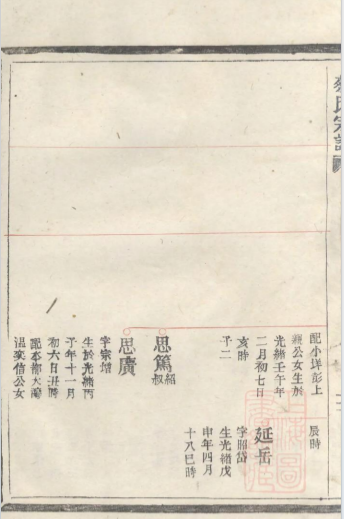 氏宗譜
配小洋彭上
公女生於
光緒壬午年
二月初七日
亥時
子二
思篤 紹叔
思廣
字宗增
生於光緒丙
子年十一月
初六日丑時
配本鄉大
溫奕信公女
辰時
延岳
字昭岱
生光緒戊
申年四月
十八巳時